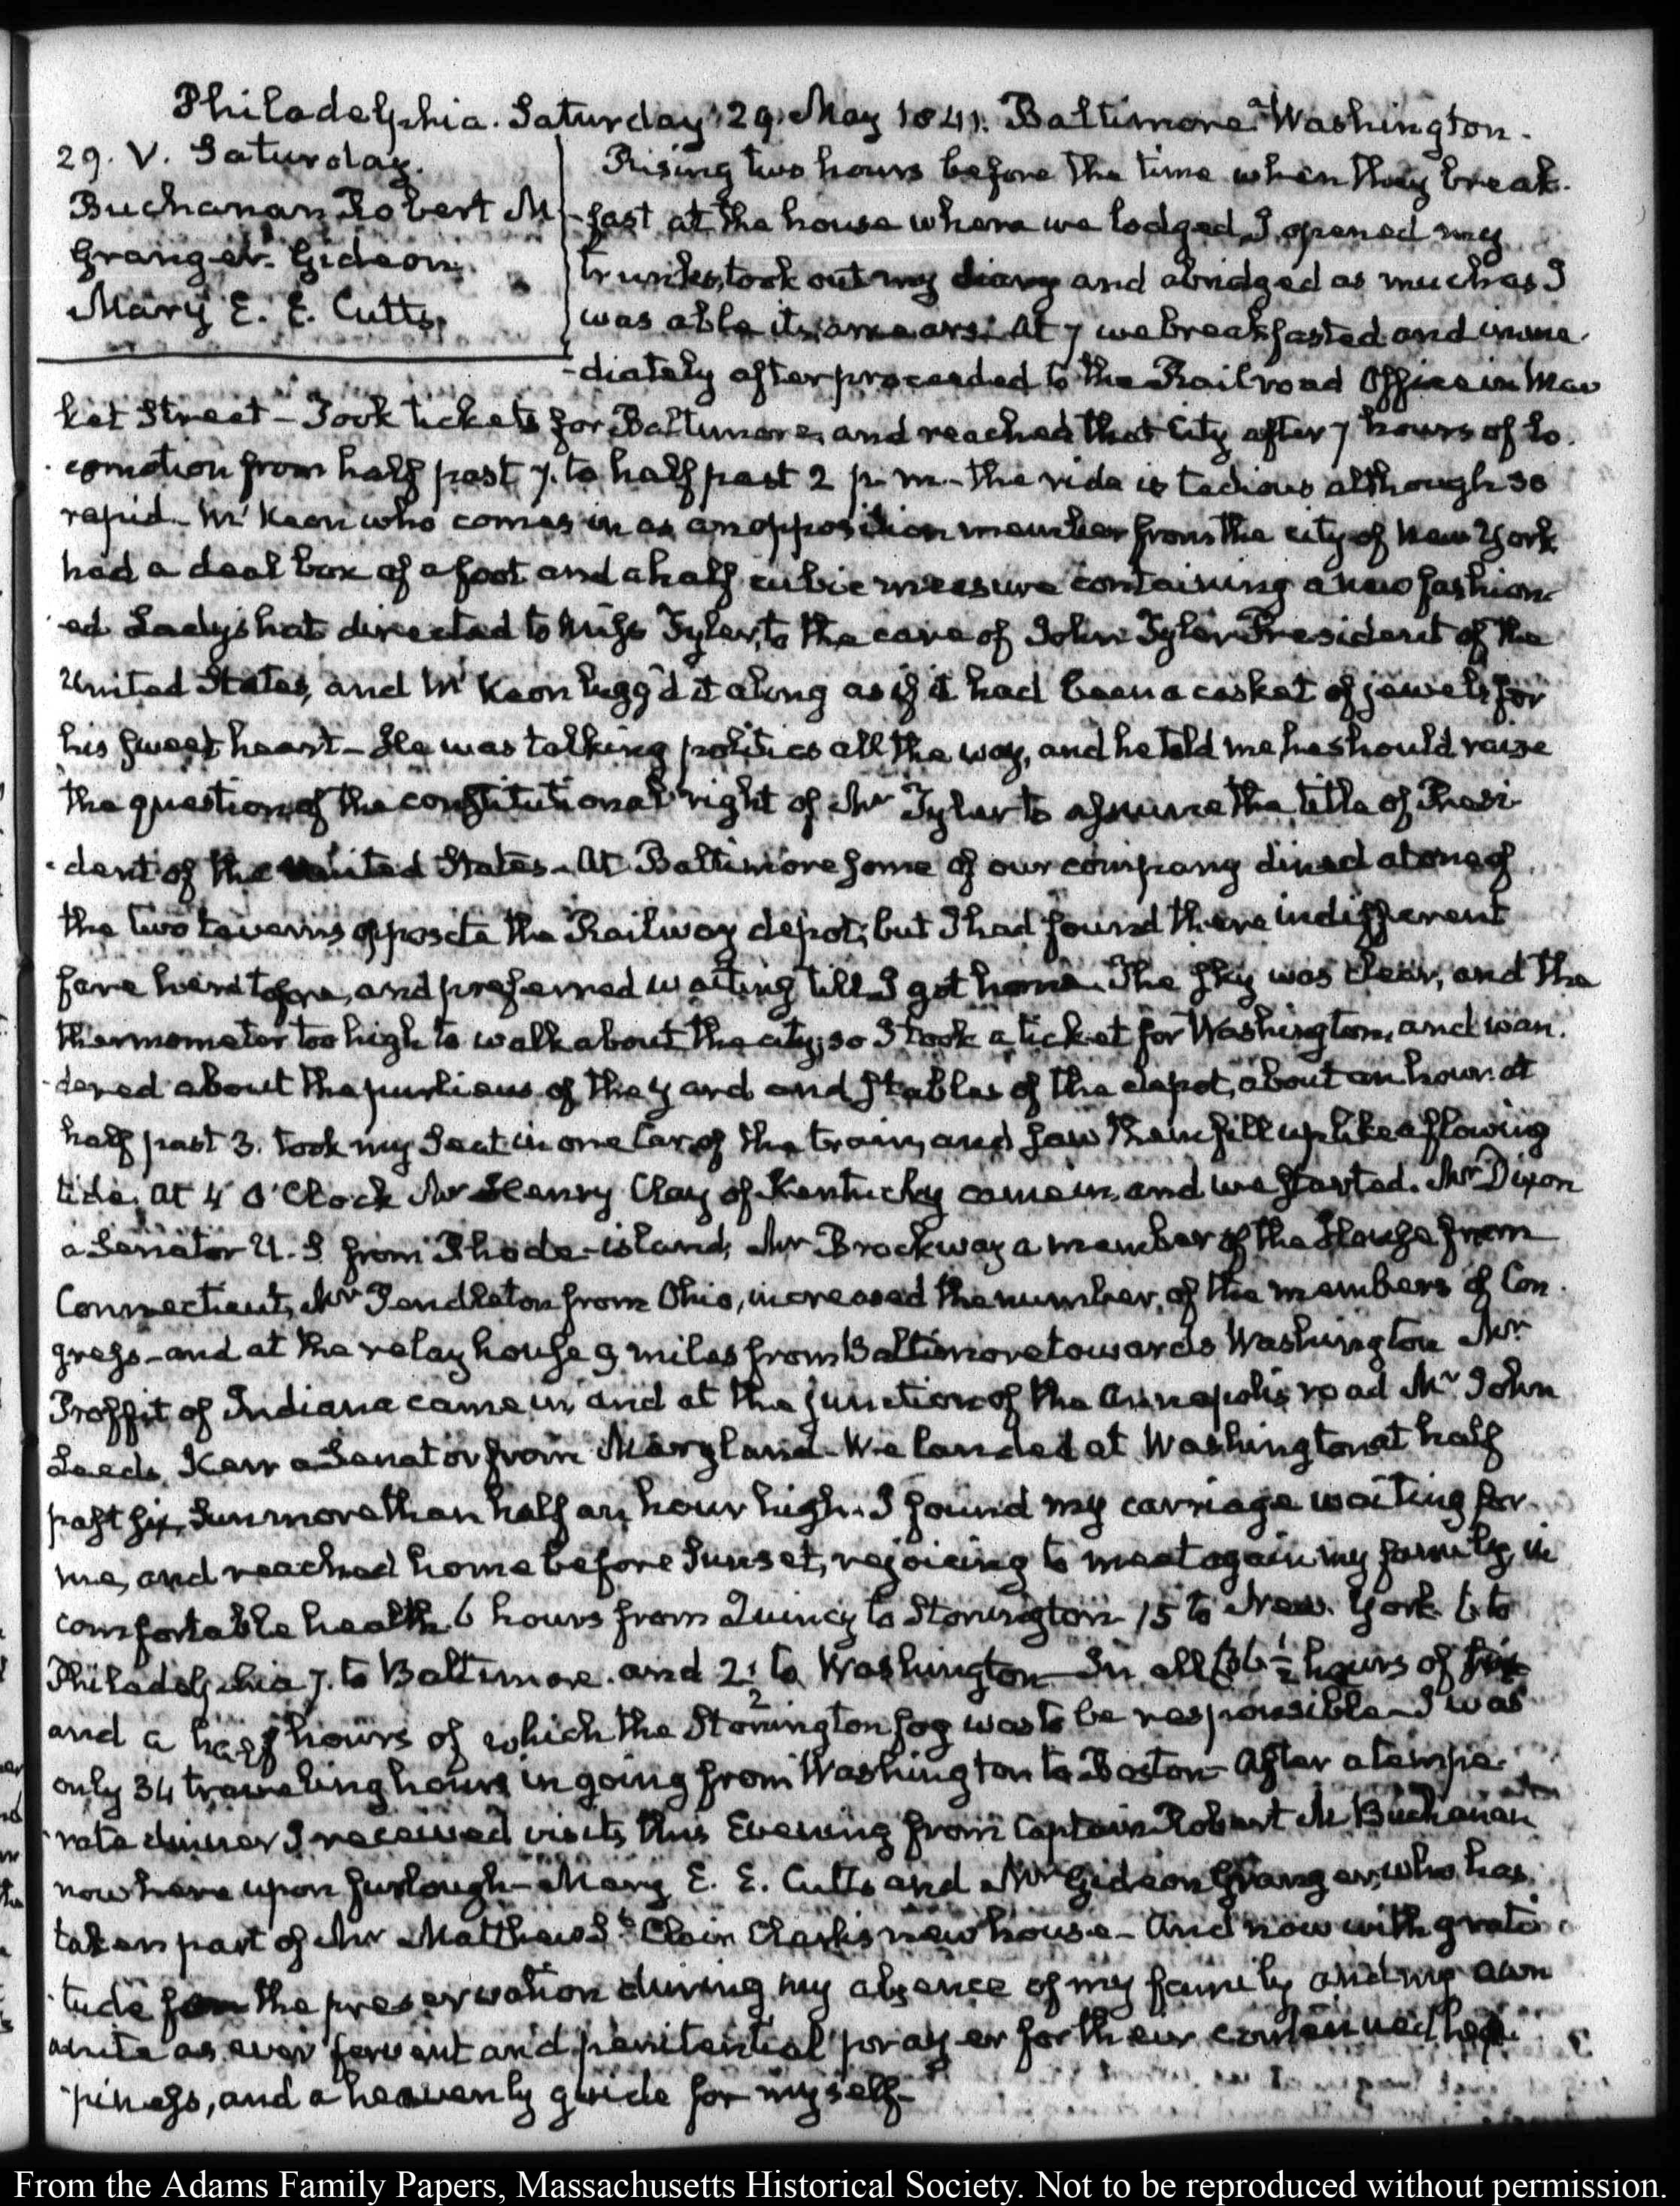 Philadelphia. Saturday 29. May 1841. Baltimore. Washington.
29. V. Saturday.
Buchanan Robert M
Granger. Gideon.
Mary E. E. Cutts.
Rising two hours before the time when they break-
-fast at the house where we lodged, I opened my
trunks, took out my diary and abridged as much as I
was able its arrears. At 7 we breakfasted and imme-
-diately after proceeded to the Railroad Office in Mar
ket Street – Took tickets for Baltimore, and reached that City after 7 hours of lo-
-comotion from half past 7. to half past 2 p. m. – the ride is tedious although so
rapid – Mc Keon who comes in as an opposition member from the city of New York
had a deal box of a foot and a half cubic measure containing a new fashion-
-ed Lady's hat directed to Miss Tyler, to the care of John Tyler President of the
United States, and Mc Keon lugg'd it along as if it had been a casket of jewels for
his sweet heart – He was talking politics all the way, and he told me he should raise
the question of the constitutional right of Mr Tyler to assume the title of Presi-
-dent of the United States – At Baltimore some of our company dined at one of
the two taverns opposite the Railway depot; but I had found there indifferent
fare heretofore, and preferred waiting till I got home. The sky was clear, and the
thermometer too high to walk about the city; so I took a ticket for Washington, and wan-
-dered about the purlieus of the yard and stables of the depot, about an hour. at
half past 3. took my Seat in one Car of the train, and saw them fill up like a flowing
tide. At 4 O'Clock Mr Henry Clay of Kentucky came in, and we started. Mr Dixon
a Senator U. S from Rhode-island, Mr Brockway a member of the House from
Connecticut, Mr Pendleton from Ohio, increased the number, of the members of Con-
gress – and at the relay house 9 miles from Baltimore towards Washington Mr
Proffit of Indiana came in, and at the junction of the Annapolis road Mr John
Leeds Kerr a Senator from Maryland – We landed at Washington at half
past six, Sun more than half an hour high. I found my carriage waiting for
me, and reached home before Sunset, rejoicing to meet again my family, in
comfortable health. 6 hours from Quincy to Stonington 15 to New. York 6 to
Philadelphia 7. to Baltimore. and 2 1/2 to Washington – In all 36 1/2 hours of
and a half hours of which the Stonington fog was to be responsible – I was
only 34 travelling hours in going from Washington to Boston – After a tempe-
-rate dinner I received visits this Evening from Captain Robert M Buchanan
now here upon furlough – Mary E. E. Cutts and Mr Gideon Granger, who has
taken part of Mr Matthew St. Clair Clarke's new house – And now with grati-
-tude for the preservation during my absence of my family and my own
unite as ever fervent and penitential prayer for their continued hap-
-piness, and a heavenly guide for myself –
From the Adams Family Papers, Massachusetts Historical Society. Not to be reproduced without permission.